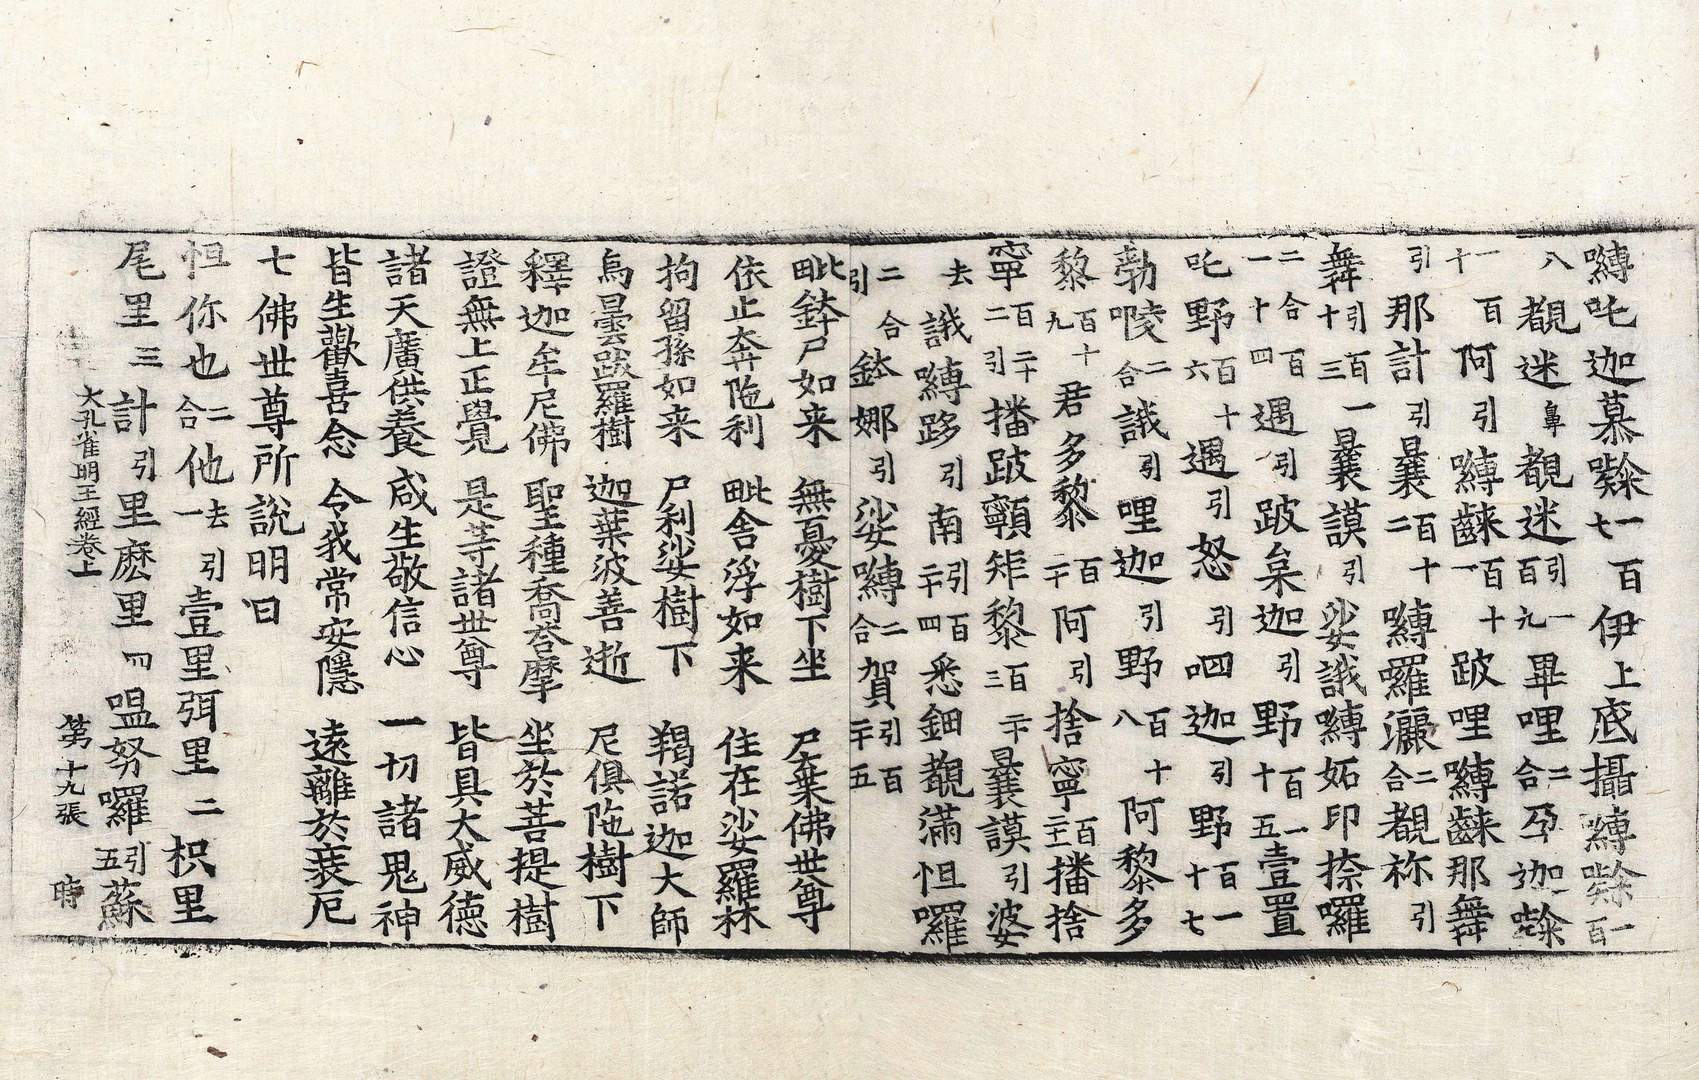 嚩吒迦慕𪘨一百七伊上底攝嚩𪘨一百
八覩迷鼻覩迷引一百九畢哩二合孕迦𪘨
一百十阿引嚩𪘨百十一跛哩嚩𪘨那舞
引那計引曩百十二嚩囉灑二合覩祢引
舞引百十三一曩謨引娑誐嚩妬印捺囉
二合百一十四遇引跛枲迦引野一百十五壹置
吒野百十六遇引怒引呬迦引野一百十七
勃𠼝二合誐引哩迦引野百十八阿黎多
黎百十九君多黎百二十阿引捨寧百二十一播捨
寧百二十二引播跛𩕳矩黎百二十三曩謨引婆
去誐嚩跢引南引百二十四悉鈿覩滿怛囉
二合鉢娜引娑嚩二合賀引百二十五引
毗鉢尸如来 無憂樹下坐 尸棄佛世尊
依止奔陁利 毗舍浮如来 住在娑羅林
拘留孫如来 尸利娑樹下 羯諾迦大師
烏曇跋羅樹 迦葉波善逝 尼俱陁樹下
釋迦牟尼佛 聖種喬荅摩 坐於菩提樹
證無上正覺 是等諸世尊 皆具大威德
諸天廣供養 咸生敬信心 一切諸鬼神
皆生歡喜念 令我常安隱 遠離於衰厄
七佛世尊所說明曰
怛你也二合他去一引壹里弭里二枳里
尾里三計引里麽里四嗢努囉引五蘇
大孔雀明王經卷上 第十九張 時